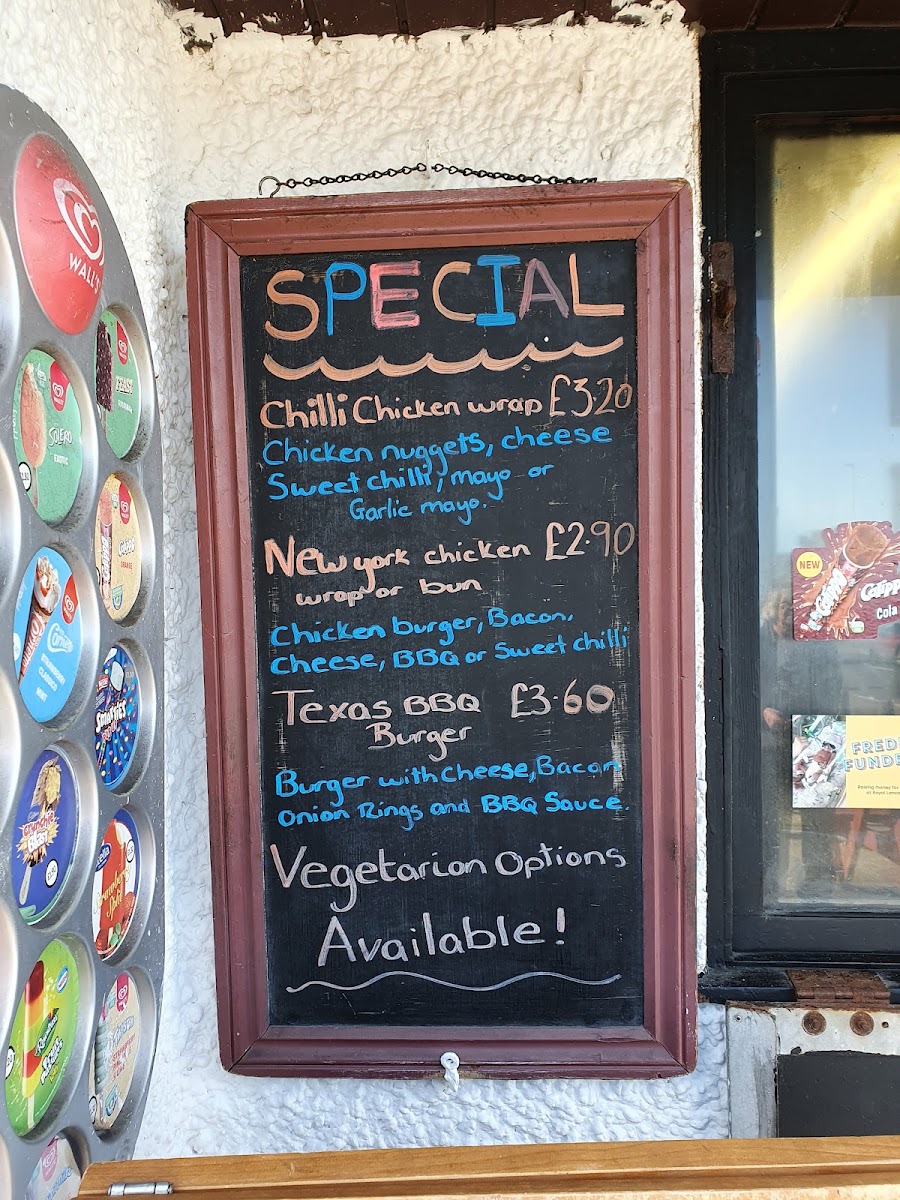 SPECIAL
Chilli Chicken wrap £3.20
Chicken nuggets, cheese
Sweet chilli, mayo or
Garlic mayo.
New york chicken £2.90
wrap or bun
Chicken burger, Bacon,
Cheese, BBQ or Sweet chilli
Texas BBQ £3.60
Burger
Burger with Cheese, Bacon
Onion Rings and BBQ Sauce.
Vegetarian Options
Available!
WALL'S
FEAST
SOLERO
EXOTIC
ORANGE
STRAWBERRY
CLASSICO
MINT
Smarties
NEW
Cola
FRED
FUNDR